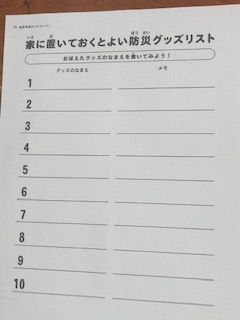 家に置いておくとよい防災グッズリスト
おぼえたグッズのなまえを書いてみよう！
グッズのなまえ メモ
1
2
3
4
5
6
7
8
9
10